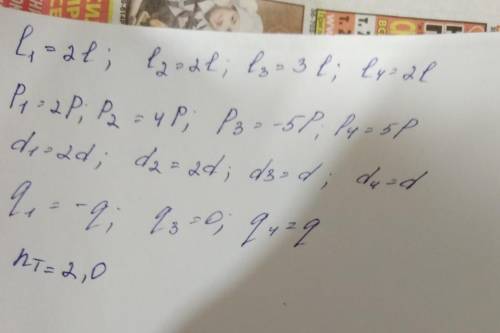 l₁ = 2l; l₂ = 2l; l₃ = 3l; l₄ = 2l
P₁ = 2P; P₂ = 4P; P₃ = -5P, P₄ = 5P
d₁ = 2d; d₂ = 2d; d₃ = d; d₄ = d
q₁ = -q; q₃ = 0; q₄ = q
n_T = 2,0